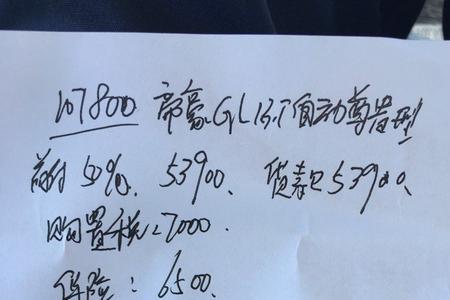 107800 帝豪GL 1.3T自动尊贵型
首付50%、53900、 贷款53900、
购置税:7000.
保险:6500.